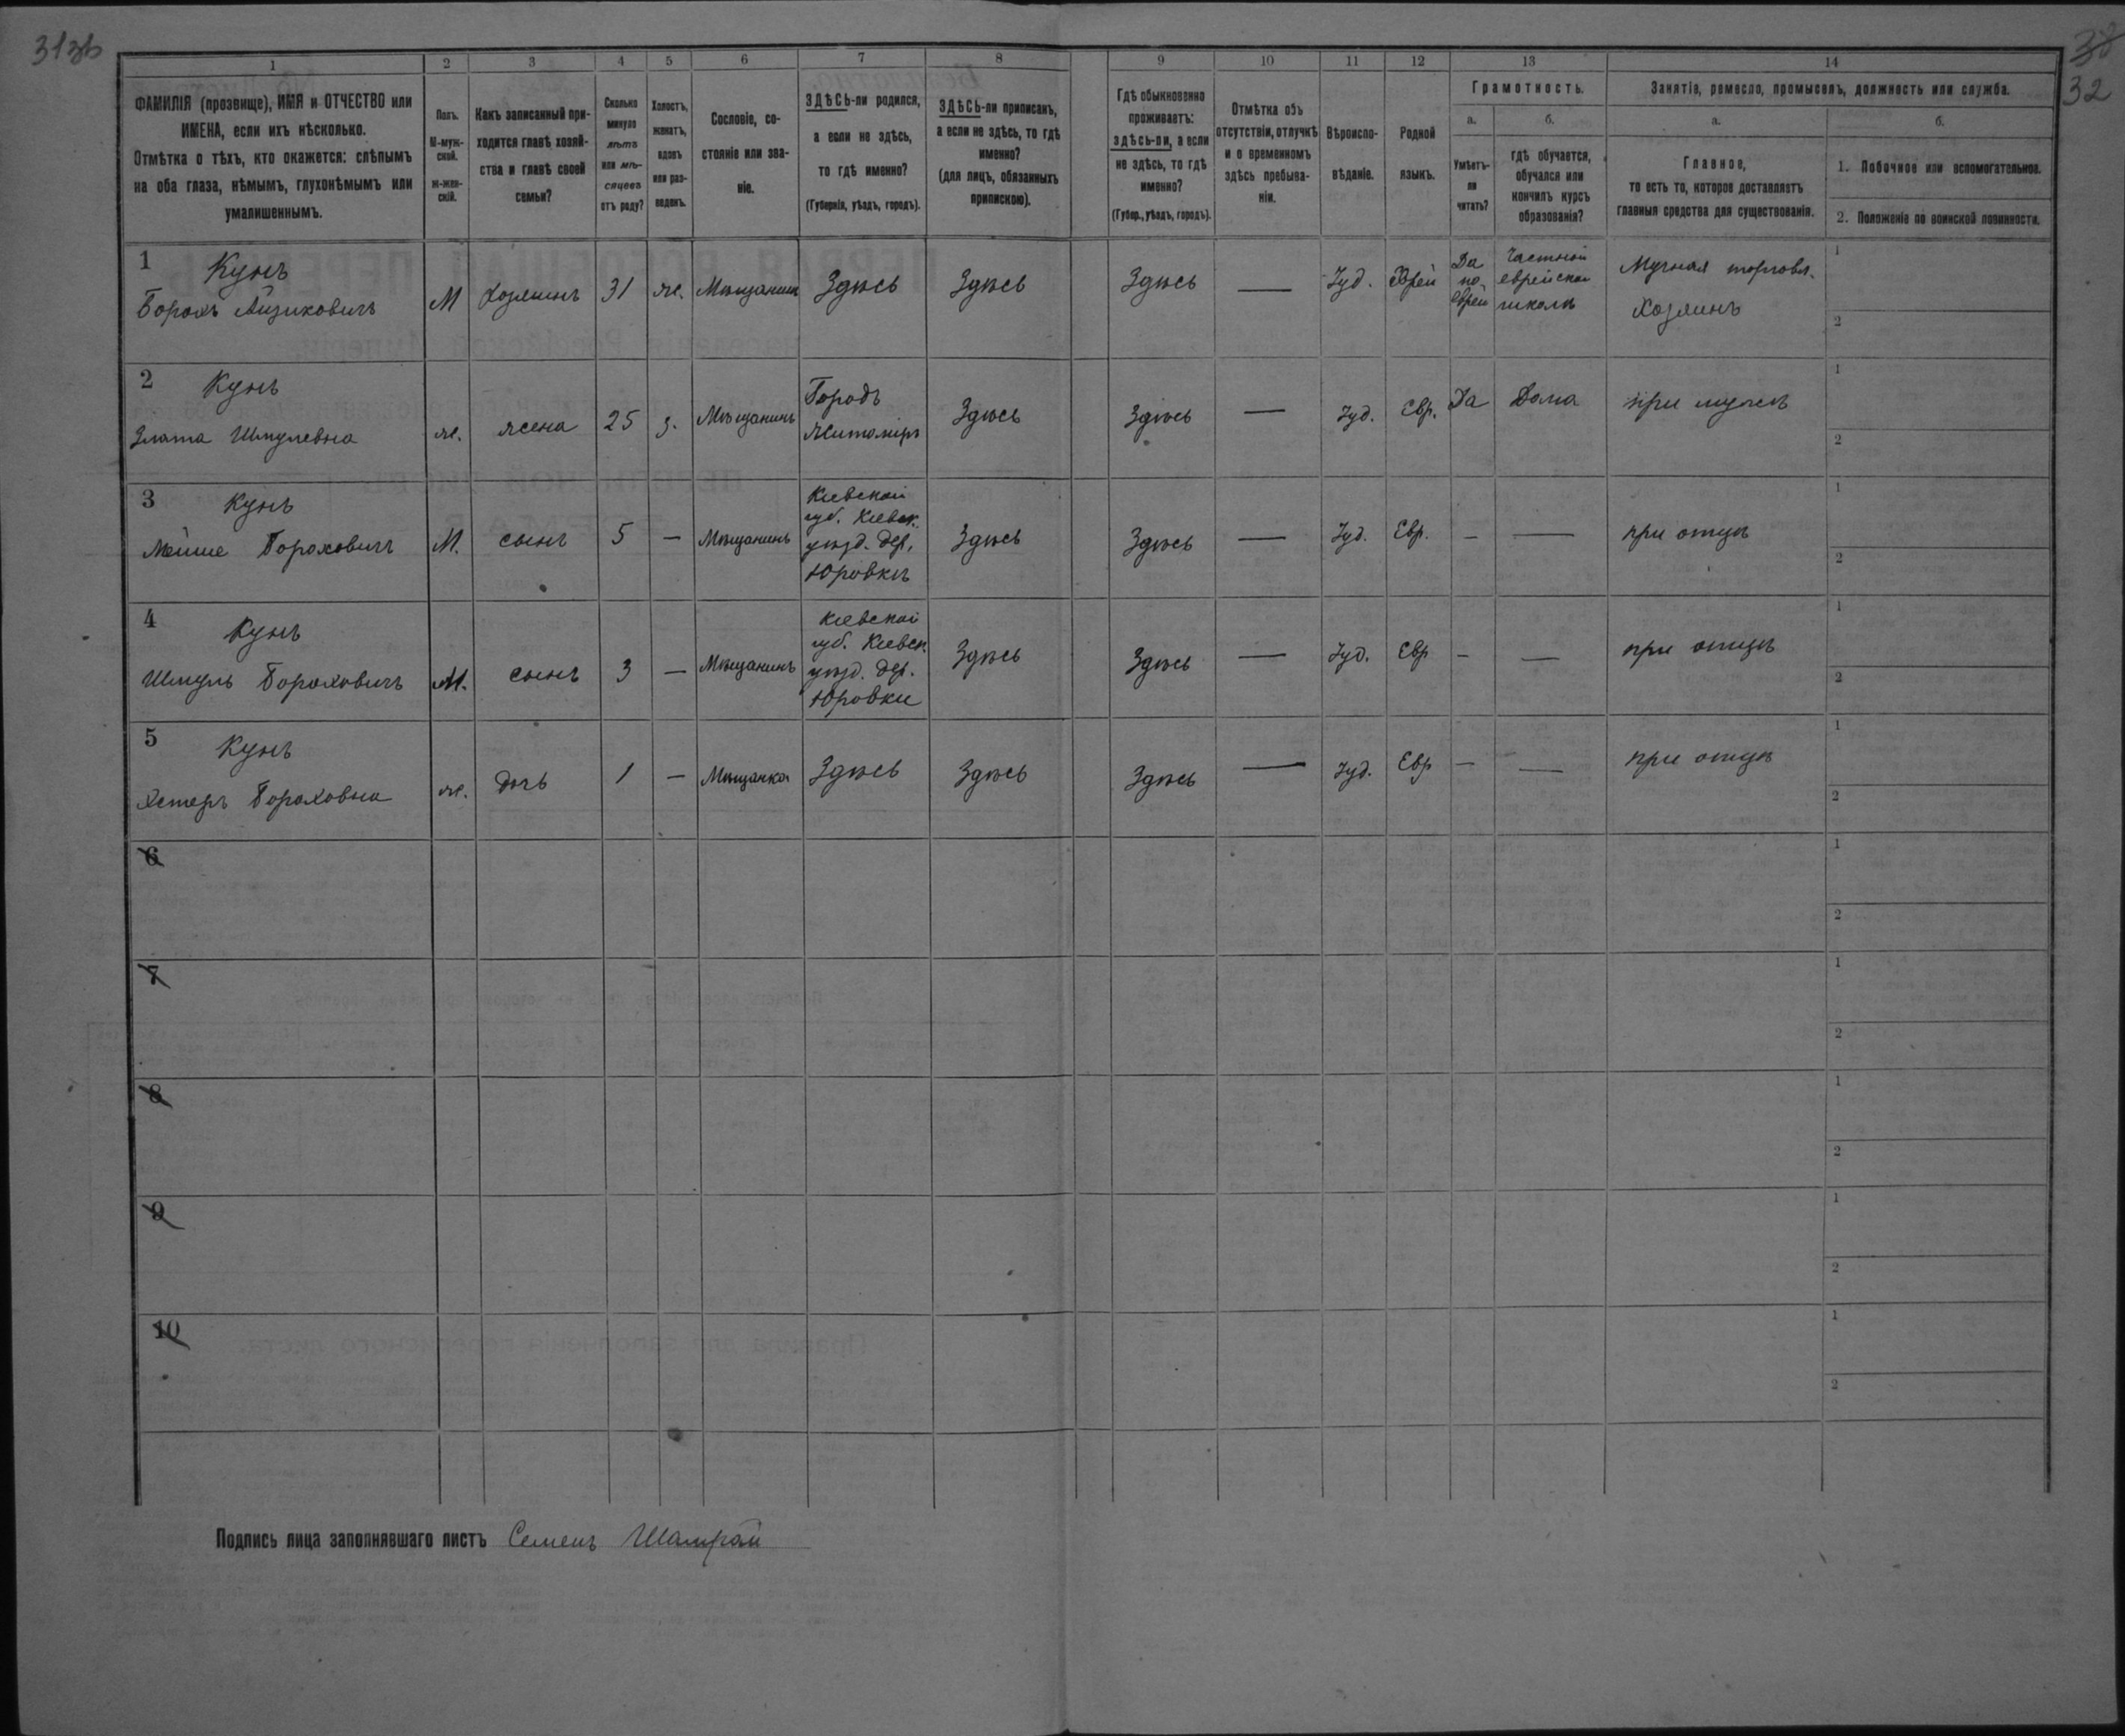 313b
38
32
1
2
3
4
5
6
7
8
9
10
11
12
13
14
ФАМИЛІЯ (прозвище), ИМЯ и ОТЧЕСТВО или
ИМЕНА, если ихъ нѣсколько.
Отмѣтка о тѣхъ, кто окажется: слѣпымъ
на оба глаза, нѣмымъ, глухонѣмымъ или
умалишеннымъ.
Полъ.
М-муж-
ской.
ж-жен-
скій.
Какъ записанный при-
ходится главѣ хозяй-
ства и главѣ своей
семьи?
Сколько
минуло
лѣтъ
или мѣ-
сяцевъ
отъ роду?
Холостъ,
женатъ,
вдовъ
или раз-
веденъ.
Сословіе, со-
стояніе или зва-
ніе.
ЗДѢСЬ-ли родился,
а если не здѣсь,
то гдѣ именно?
(Губернія, уѣздъ, городъ).
ЗДѢСЬ-ли приписанъ,
а если не здѣсь, то гдѣ
именно?
(для лицъ, обязанныхъ
припискою).
Гдѣ обыкновенно
проживаетъ:
здѣсь-ли, а если
не здѣсь, то гдѣ
именно?
(Губер., уѣздъ, городъ).
Отмѣтка объ
отсутствіи, отлучкѣ
и о временномъ
здѣсь пребыва-
ніи.
Вѣроиспо-
вѣданіе.
Родной
языкъ.
Грамотность.
а.
Умѣетъ-
ли
читать?
б.
гдѣ обучается,
обучался или
кончилъ курсъ
образованія?
Занятіе, ремесло, промыселъ, должность или служба.
а.
Главное,
то есть то, которое доставляетъ
главныя средства для существованія.
б.
1. Побочное или вспомогательное.
2. Положеніе по воинской повинности.
1
Кунъ
Борохъ Айзиковичъ
М
хозяинъ
31
ж.
Мѣщанинъ
Здѣсь
Здѣсь
Здѣсь
—
Іуд.
Еврей
Да
по
еврей
Частной
еврейской
школѣ
Мучная торговл.
Хозяинъ
1
2
2
Кунъ
Злата Шмулевна
ж.
жена
25
з.
Мѣщанинъ
Городъ
Житоміръ
Здѣсь
Здѣсь
—
Іуд.
Евр.
Да
Дома
при мужѣ
1
2
3
Кунъ
Мейше Бороховичъ
М.
сынъ
5
—
Мѣщанинъ
Кіевской
губ. Кіевск.
уѣзд. дер.
Юровкѣ
Здѣсь
Здѣсь
—
Іуд.
Евр.
—
—
при отцѣ
1
2
4
Кунъ
Шмуль Бороховичъ
М.
сынъ
3
—
Мѣщанинъ
Кіевской
губ. Кіевск.
уѣзд. дер.
Юровки
Здѣсь
Здѣсь
—
Іуд.
Евр
—
—
при отцѣ
1
2
5
Кунъ
Хстеръ Бороховна
ж.
дочь
1
—
Мѣщанка
Здѣсь
Здѣсь
Здѣсь
—
Іуд.
Евр
—
—
при отцѣ
1
2
6
1
2
7
1
2
8
1
2
9
1
2
10
1
2
Подпись лица заполнявшаго листъ Семенъ Шамрай